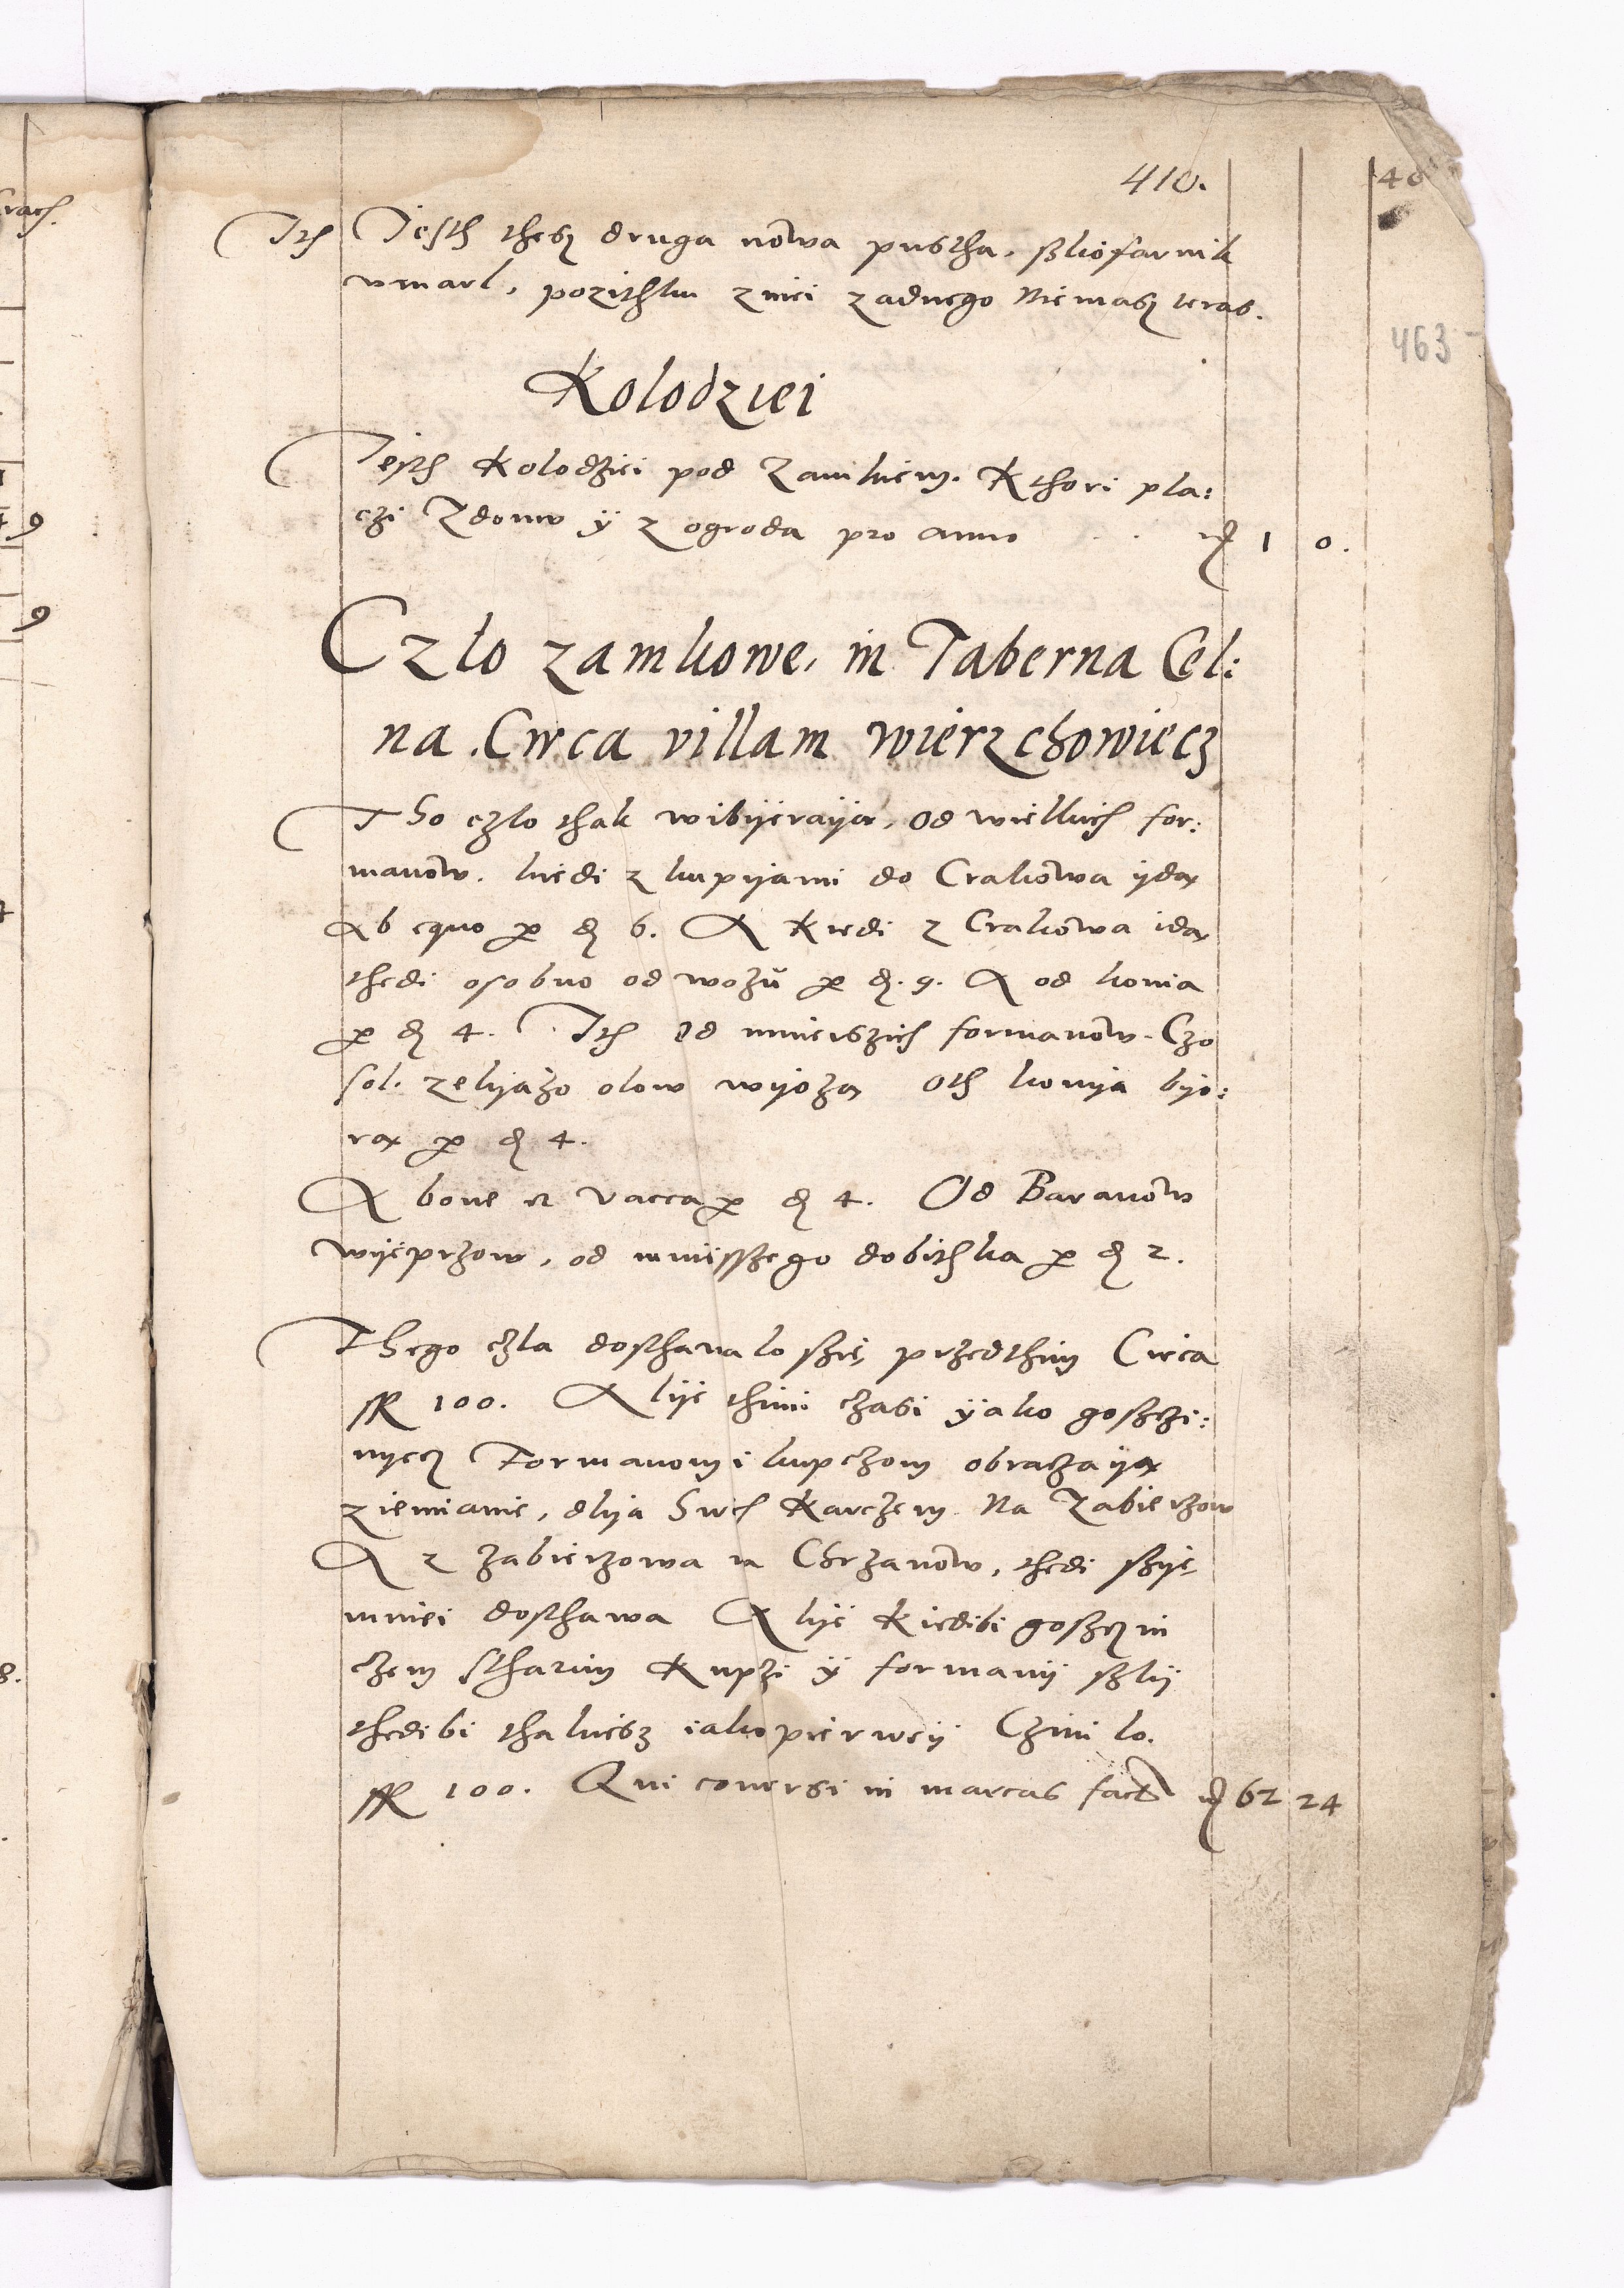 410.
Ith Jesth thesz druga nowa pustha, szliosarnik
umarl, pozithku zniei zadnego Niemasz teras.
463
Kolodziei
Jesth Kolodziei pod Zamkiem. Kthori pla:
czi Zdomu ÿ z ogroda pro anno 1 0.
Czlo zamkowe, in Taberna Cel:
na. Circa villam wierzchowiecz
Tho czlo thak wibijeraija, Od wielkich for:
manow. kiedi z kupijami do Crakowa ijdą
Ab equo per d 6. A Kiedi z Crakowa idą
thedi osobno od wozu per d. 9. A od konia
per d 4. Ith Od mnieiszich formanow. Czo
sol. zeliazo olow wijozą Oth konija bijo:
rą per d 4.
A bove et vacca per d 4. Od Baranow
wijeprzow, od mniesszego dobithka per d 2.
Thego czla dosthawalo szię przedthim Circa
fl 100. A lije thimi czasi ÿako goszczi:
nijecz Formanom i kupczom obraczaiją
ziemianie, dlija Swich Karczem Na Zabierzow
A z zabierzowa na Chrzanow, thedi szije
mniei dosthawa A lije Kiedibi goszczin
czem stharim Kupczi ÿ formanij szlij
thedibi thakiesz iako pierweij Czinilo.
fl 100. Qui conversi in marcas fact 62 24